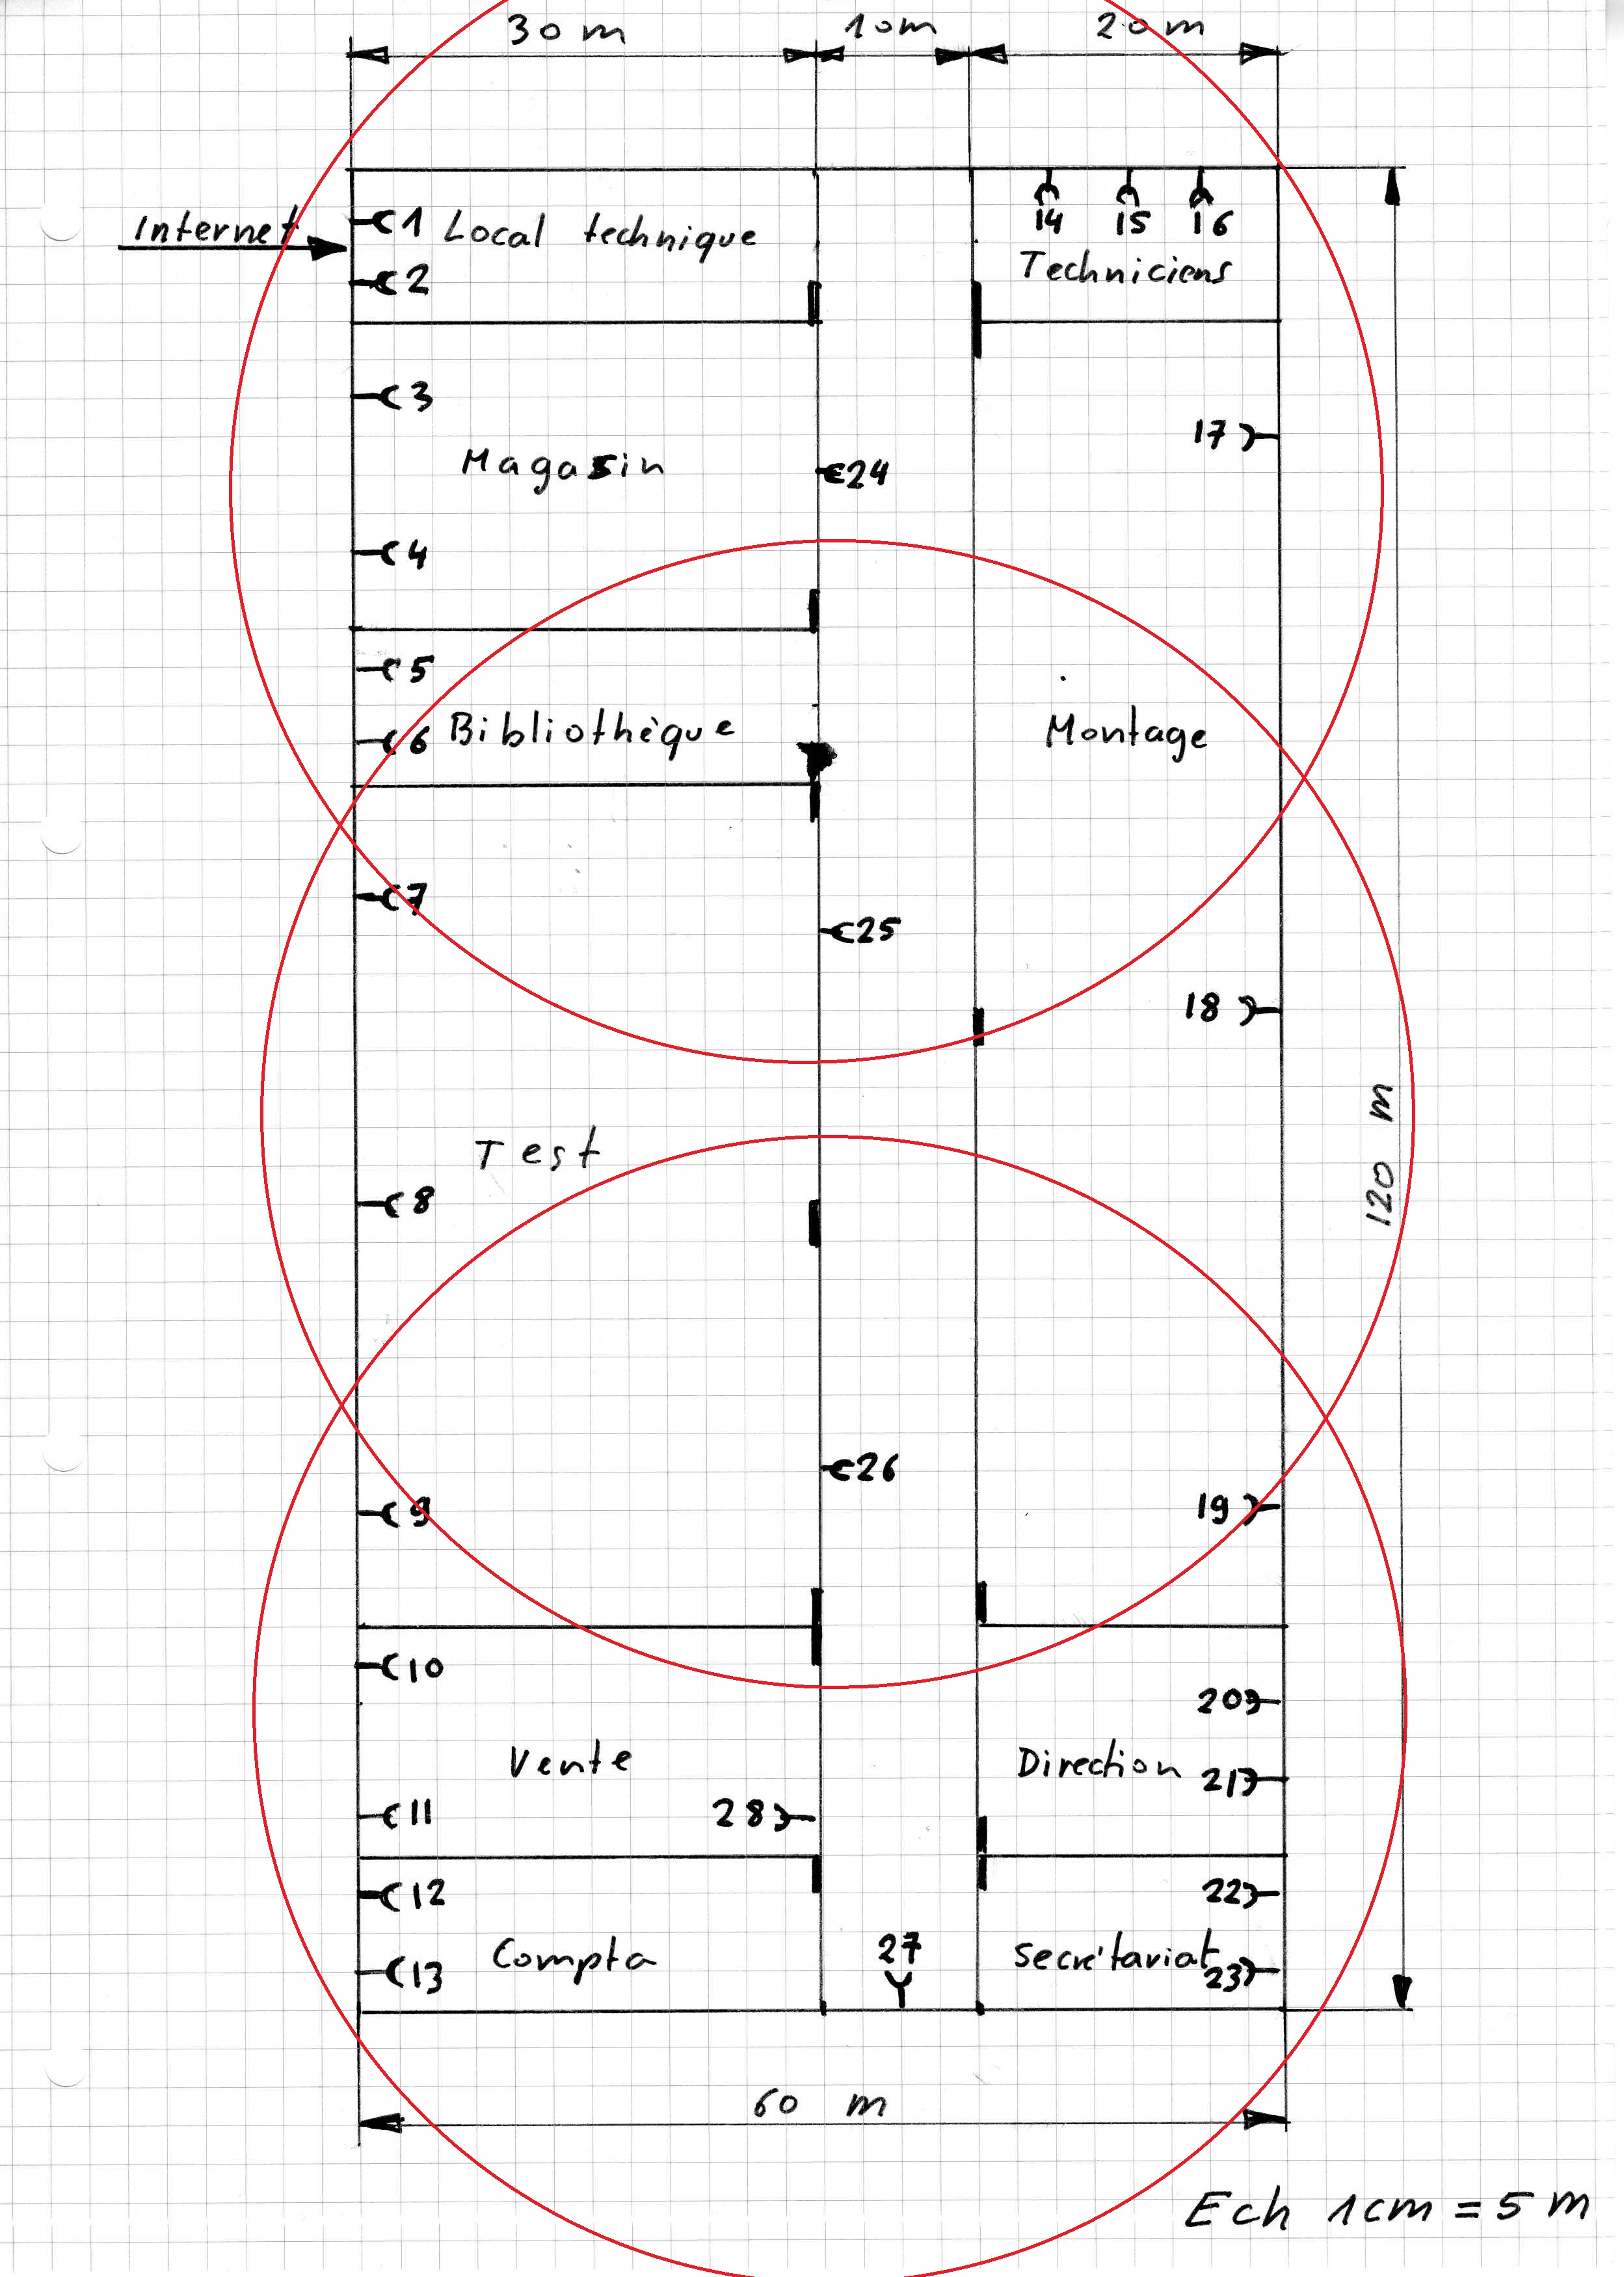 30 m 10m 20 m
14 15 16
Internet
1 Local technique
2
Techniciens
3
17
Magasin
24
4
5
6 Bibliothèque
Montage
7
25
18
120 m
Test
8
26
9
19
10
20
Vente
Direction 21
11
28
12
22
27
13 Compta
Secrétariat 23
60 m
Ech 1cm = 5 m